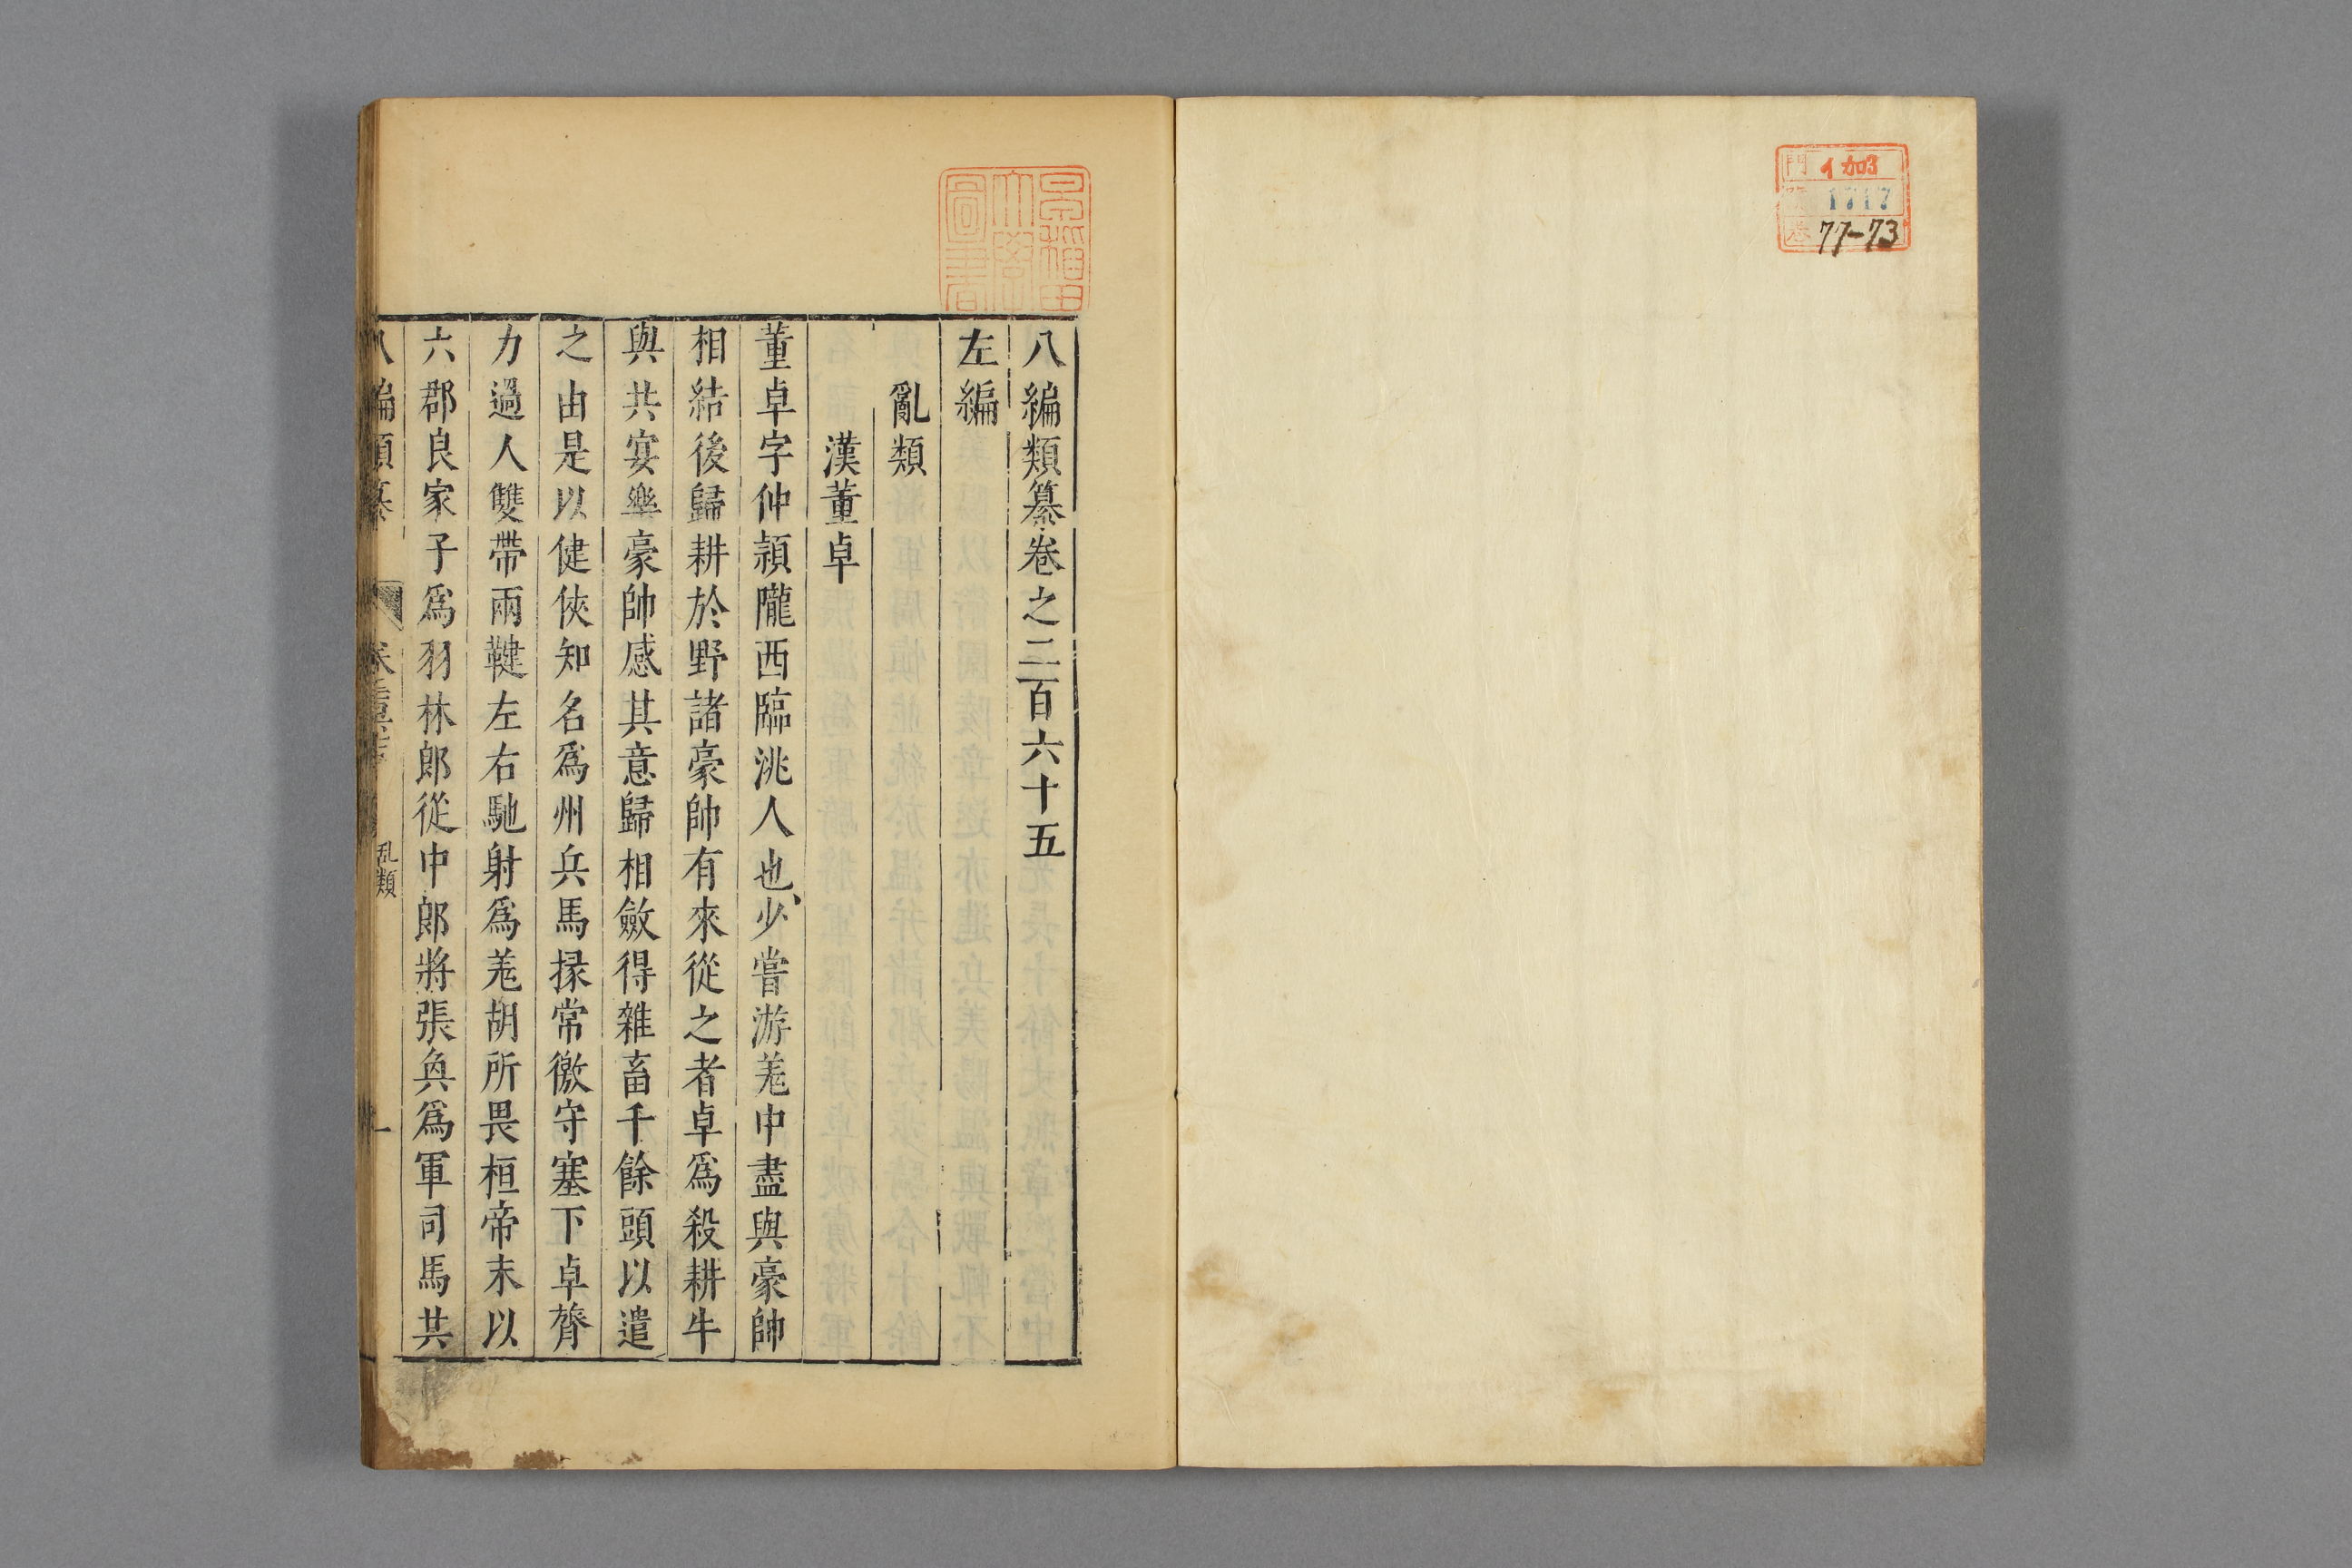 門 イ加3
1717
巻 77-73
早稲田
大學
圖書
八編類纂卷之二百六十五
左編
亂類
漢董卓
董卓字仲頴隴西臨洮人也少嘗游羗中盡與豪帥
相結後歸耕於野諸豪帥有來從之者卓爲殺耕牛
與共宴樂豪帥感其意歸相斂得雜畜千餘頭以遺
之由是以健俠知名爲州兵馬掾常徼守塞下卓膂
力過人雙帶兩鞬左右馳射爲羗胡所畏桓帝末以
六郡良家子爲羽林郎從中郎將張奐爲軍司馬共
八編類纂
乱類
一